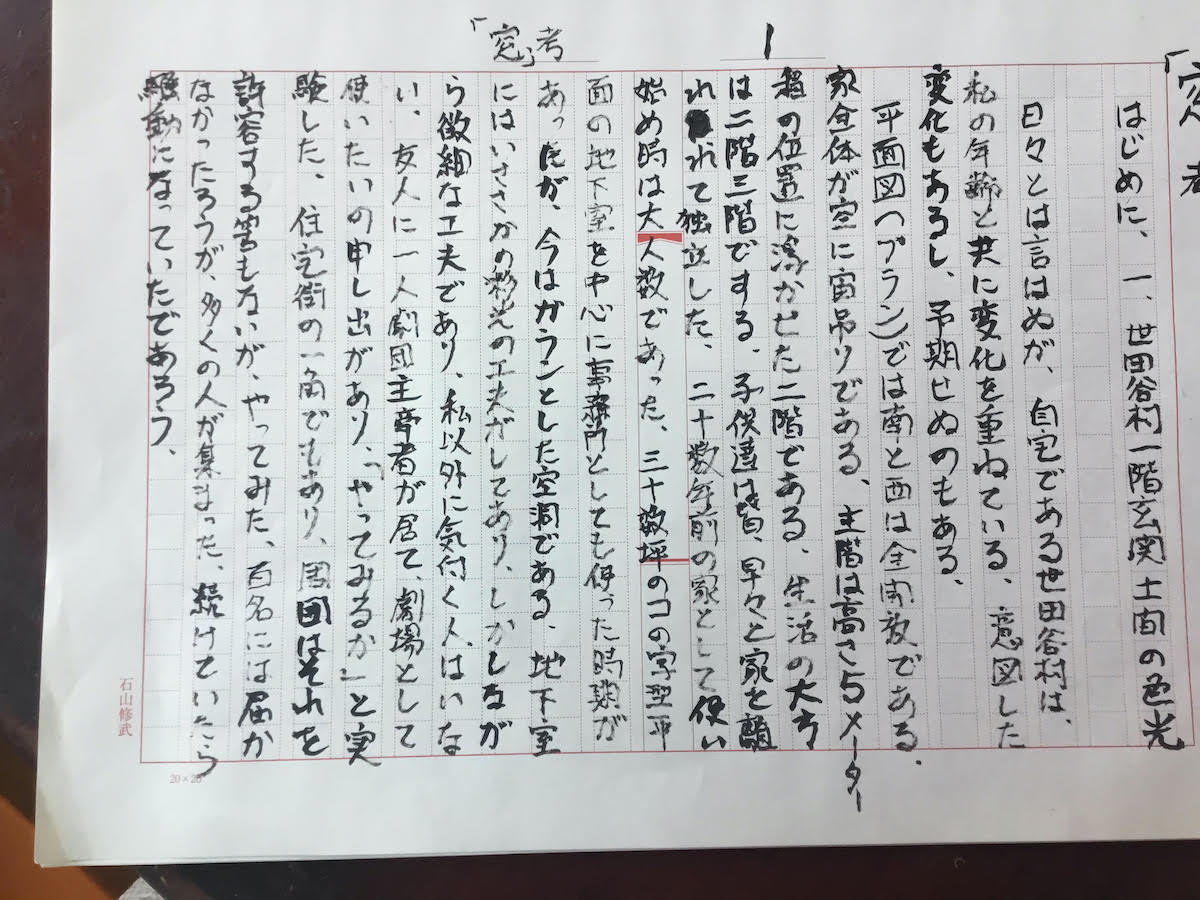 「窓」考
1
「窓」考
はじめに、一、世田谷村一階玄関土間の色光
日々とは言はぬが、自宅である世田谷村は、
私の年齢と共に変化を重ねている、意図した
変化もあるし、予期せぬのもある、
平面図(プラン)では南と西は全開放である、
家全体が空に宙吊りである、主階は高さ5メーター
程の位置に浮かせた二階である、生活の大方
は二階三階でする、子供達は皆、早々と家を離
れて独立した、二十数年前の家として使い
始め時は大人数であった、三十数坪のコの字型平
面の地下室を中心に事務門としても使った時期が
あったが、今はガランとした空洞である、地下室
にはいささかの彩光の工夫がしてあり、しかしなが
ら微細な工夫であり、私以外に気付く人はいな
い、友人に一人劇団主宰者が居て、劇場として
使いたいの申し出があり、「やってみるか」と実
験した、住宅街の一角でもあり、周囲はそれを
許容する筈もないが、やってみた、百名には届か
なかったろうが、多くの人が集まった、続けていたら
騒動になっていたであろう、
石山修武
20×20